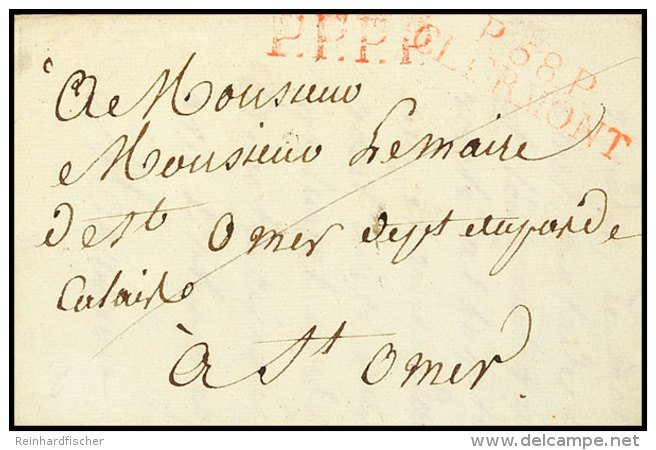 P.P.P.P.
P.58P.
CLERMONT.
A Monsieur
Monsieur Lemaire
de st omer dept du pas de
Calais
à St omer
Reinhardfischer
www.delcampe.net